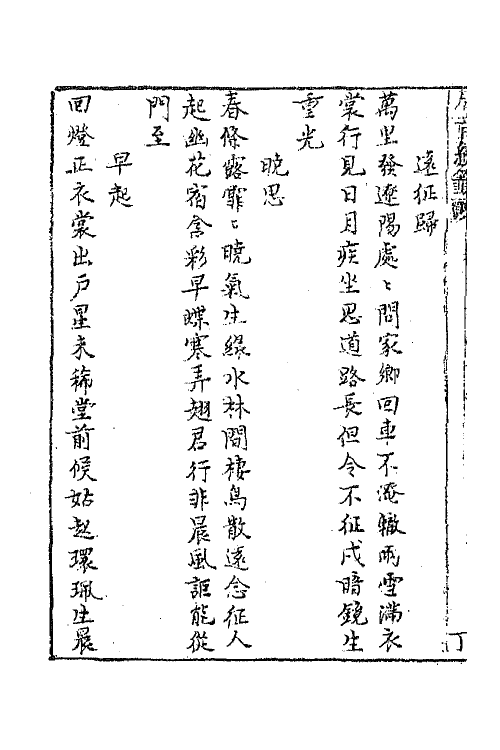 遠征歸
萬里發遼陽處〻問家鄉回車不淹轍雨雪滿衣
裳行見日月疾坐思道路長但令不征戍暗鏡生
重光
晚思
春條露霏〻曉氣生綠水林間棲鳥散遠念征人
起幽花宿含彩早蝶寒弄翅君行非晨風詎能從
門至
早起
回燈正衣裳出戶星未稀堂前候姑起環珮生晨